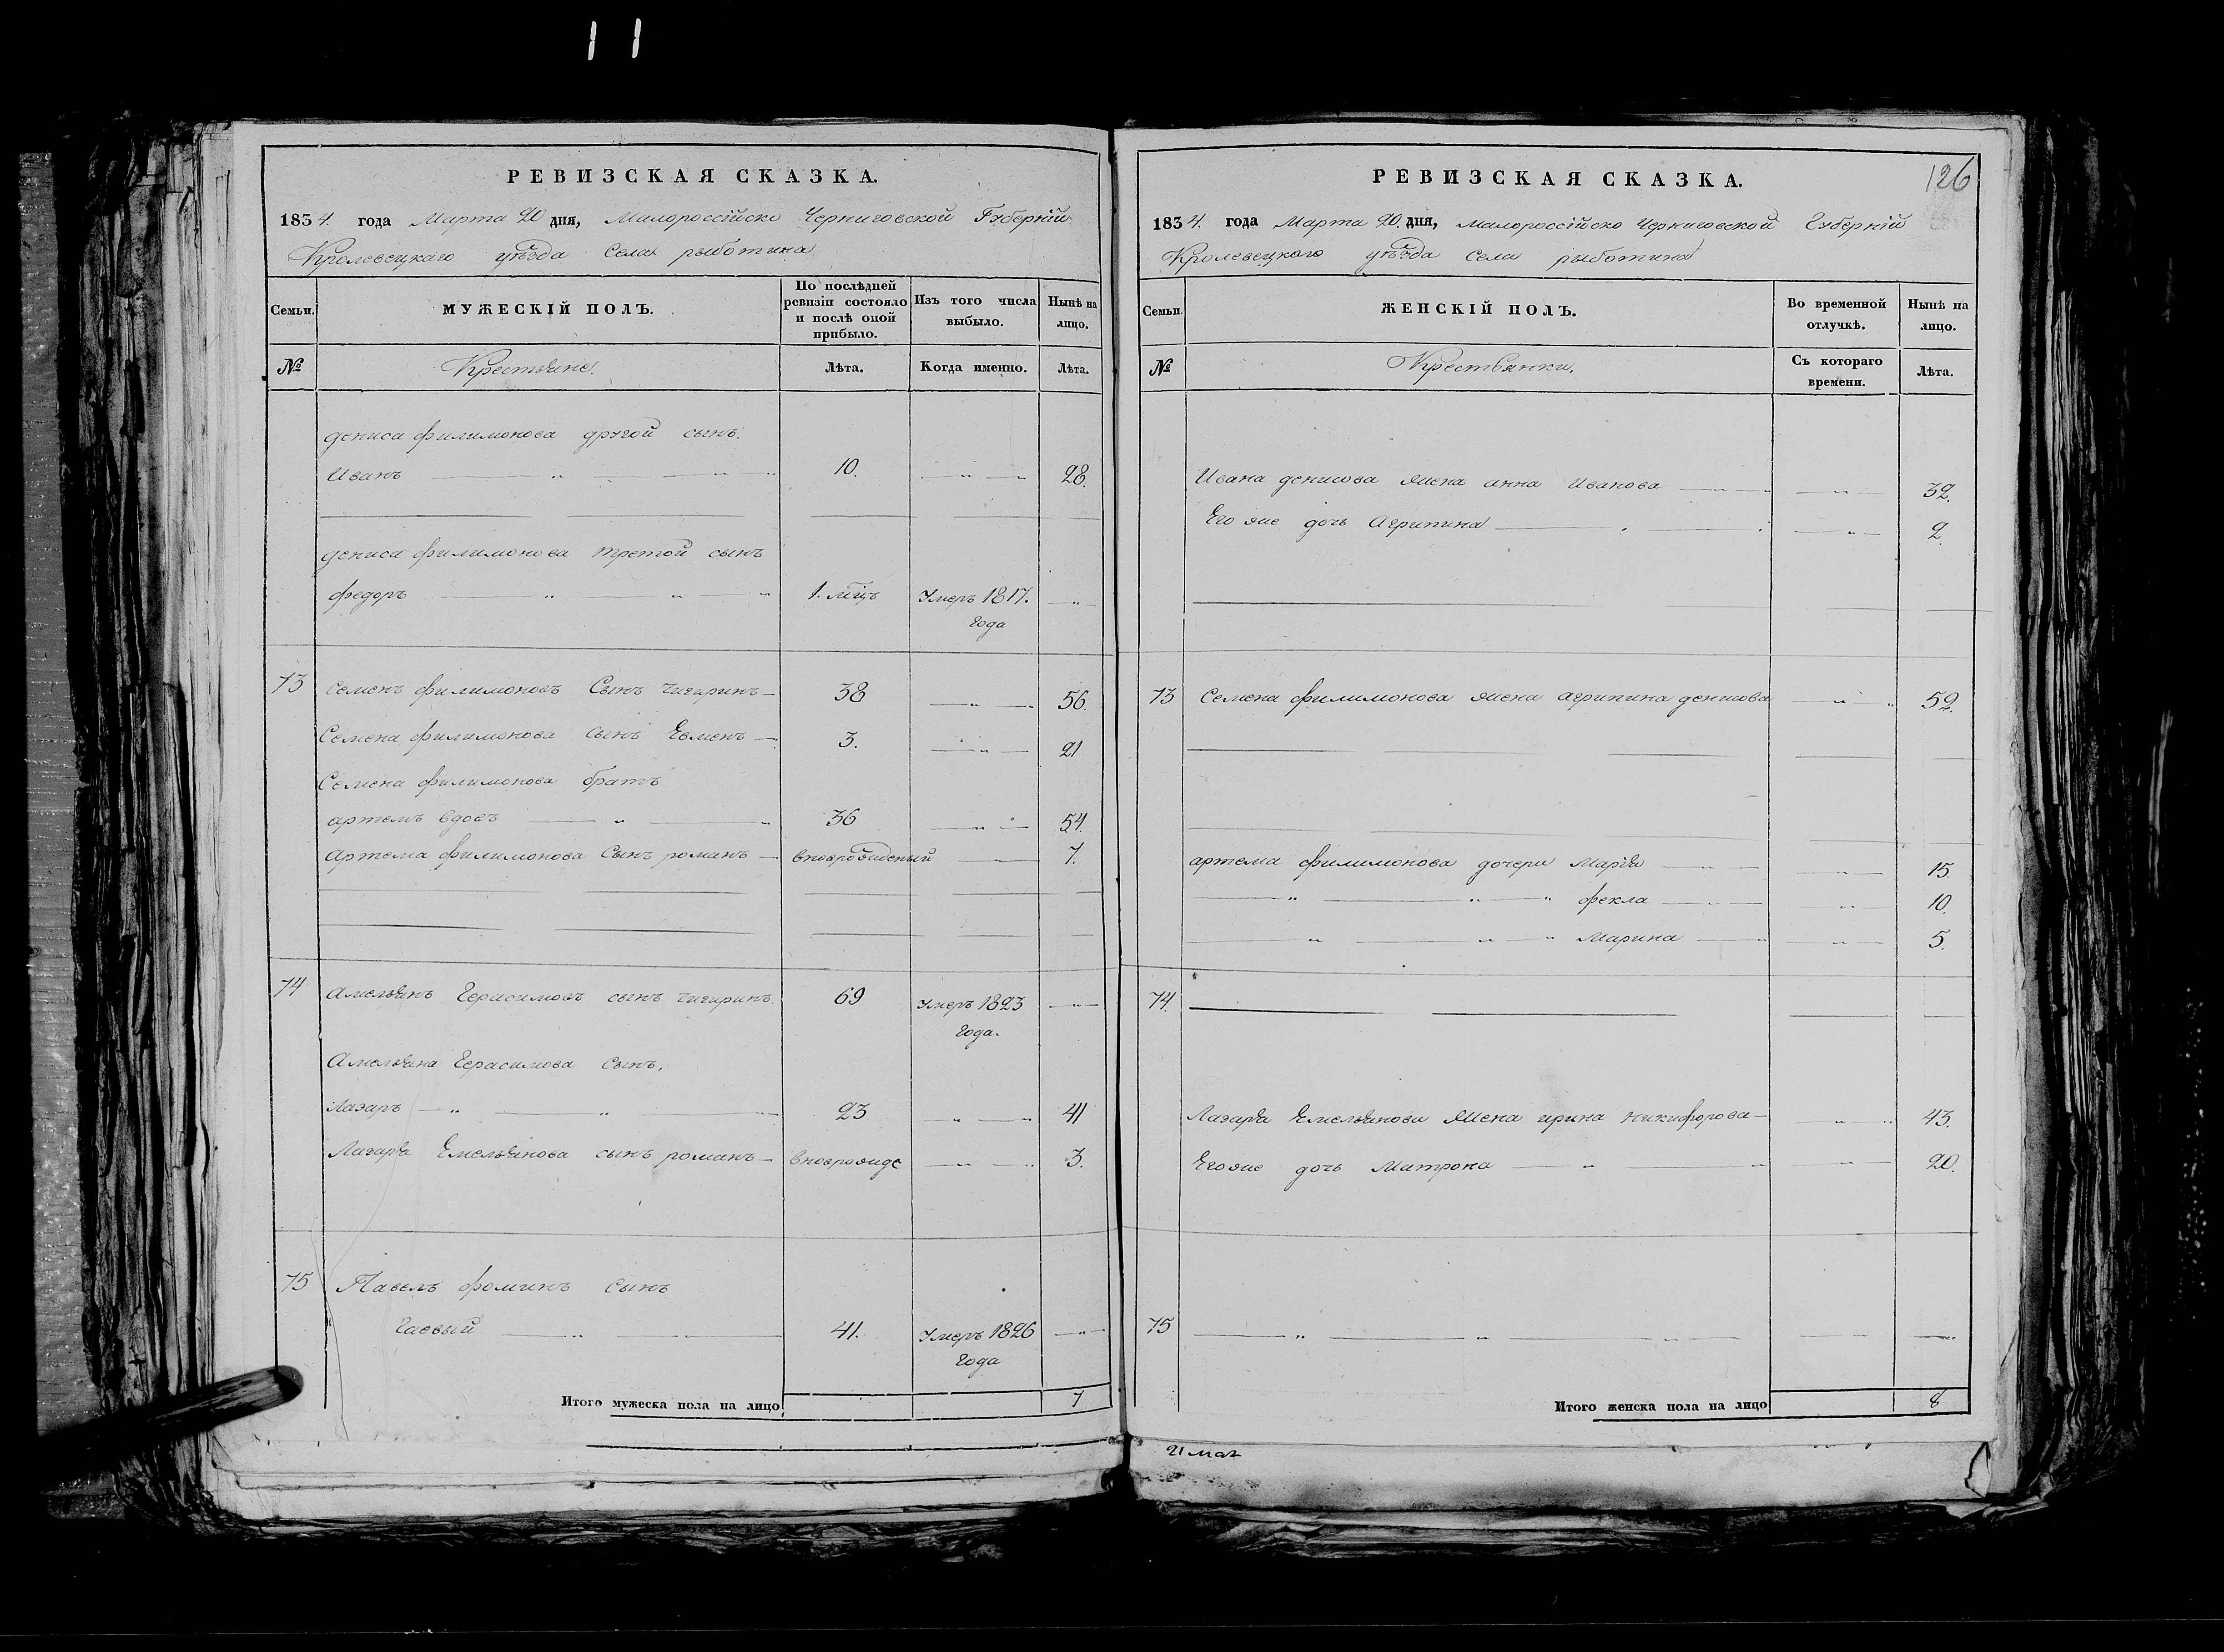 11
РЕВИЗСКАЯ СКАЗКА.
1834. года Марта 20 дня, Малороссійско Черниговской Губерніи
Кролевецкаго уѣзда Села рыботина
Семьи.
МУЖЕСКІЙ ПОЛЪ.
По послѣдней ревизіи состояло и послѣ оной прибыло.
Изъ того числа выбыло.
Нынѣ на лицо.
№
Крестьяне.
Лѣта.
Когда именно.
Лѣта.
дениса филимонова другой сынъ.
Иванъ 10. 28.
дениса филимонова третой сынъ
федоръ 1. мѣцъ Умеръ 1817. года
73 Семенъ филимоновъ Сынъ чигиринъ 38 56.
Семена филимонова Сынъ Евменъ 3. 21
Семена филимонова братъ
артемъ вдовъ 36 54.
артема филимонова Сынъ романъ вновьрожденый 7.
74 Амельянъ Герасимовъ сынъ чигиринъ. 69 Умеръ 1823 года.
Амельяна Герасимова Сынъ,
Лазаръ 23 41
Лазаря Емельянова сынъ романъ вноврожде 3.
75 Павелъ фоминъ Сынъ
Гаевый 41. Умеръ 1826 года
Итого мужеска пола на лицо 7
126
РЕВИЗСКАЯ СКАЗКА.
1834. года Марта 20. дня, Малороссійско Черниговской Губерніи
Кролевецкого уѣзда Села рыботина
Семьи.
ЖЕНСКІЙ ПОЛЪ.
Во временной отлучкѣ.
Нынѣ на лицо.
№
Крестьянки.
Съ котораго времени.
Лѣта.
Ивана денисова жена анна Иванова 32.
Его же дочь Агрипина 2.
73 Семена филимонова жена агрипина денисова 52.
артема филимонова дочери Марія 15.
фекла 10.
Марина 5.
74.
Лазаря Емельянова жена ирина никифорова 43.
Егоже дочь Матрона 20.
75
Итого женска пола на лицо 8